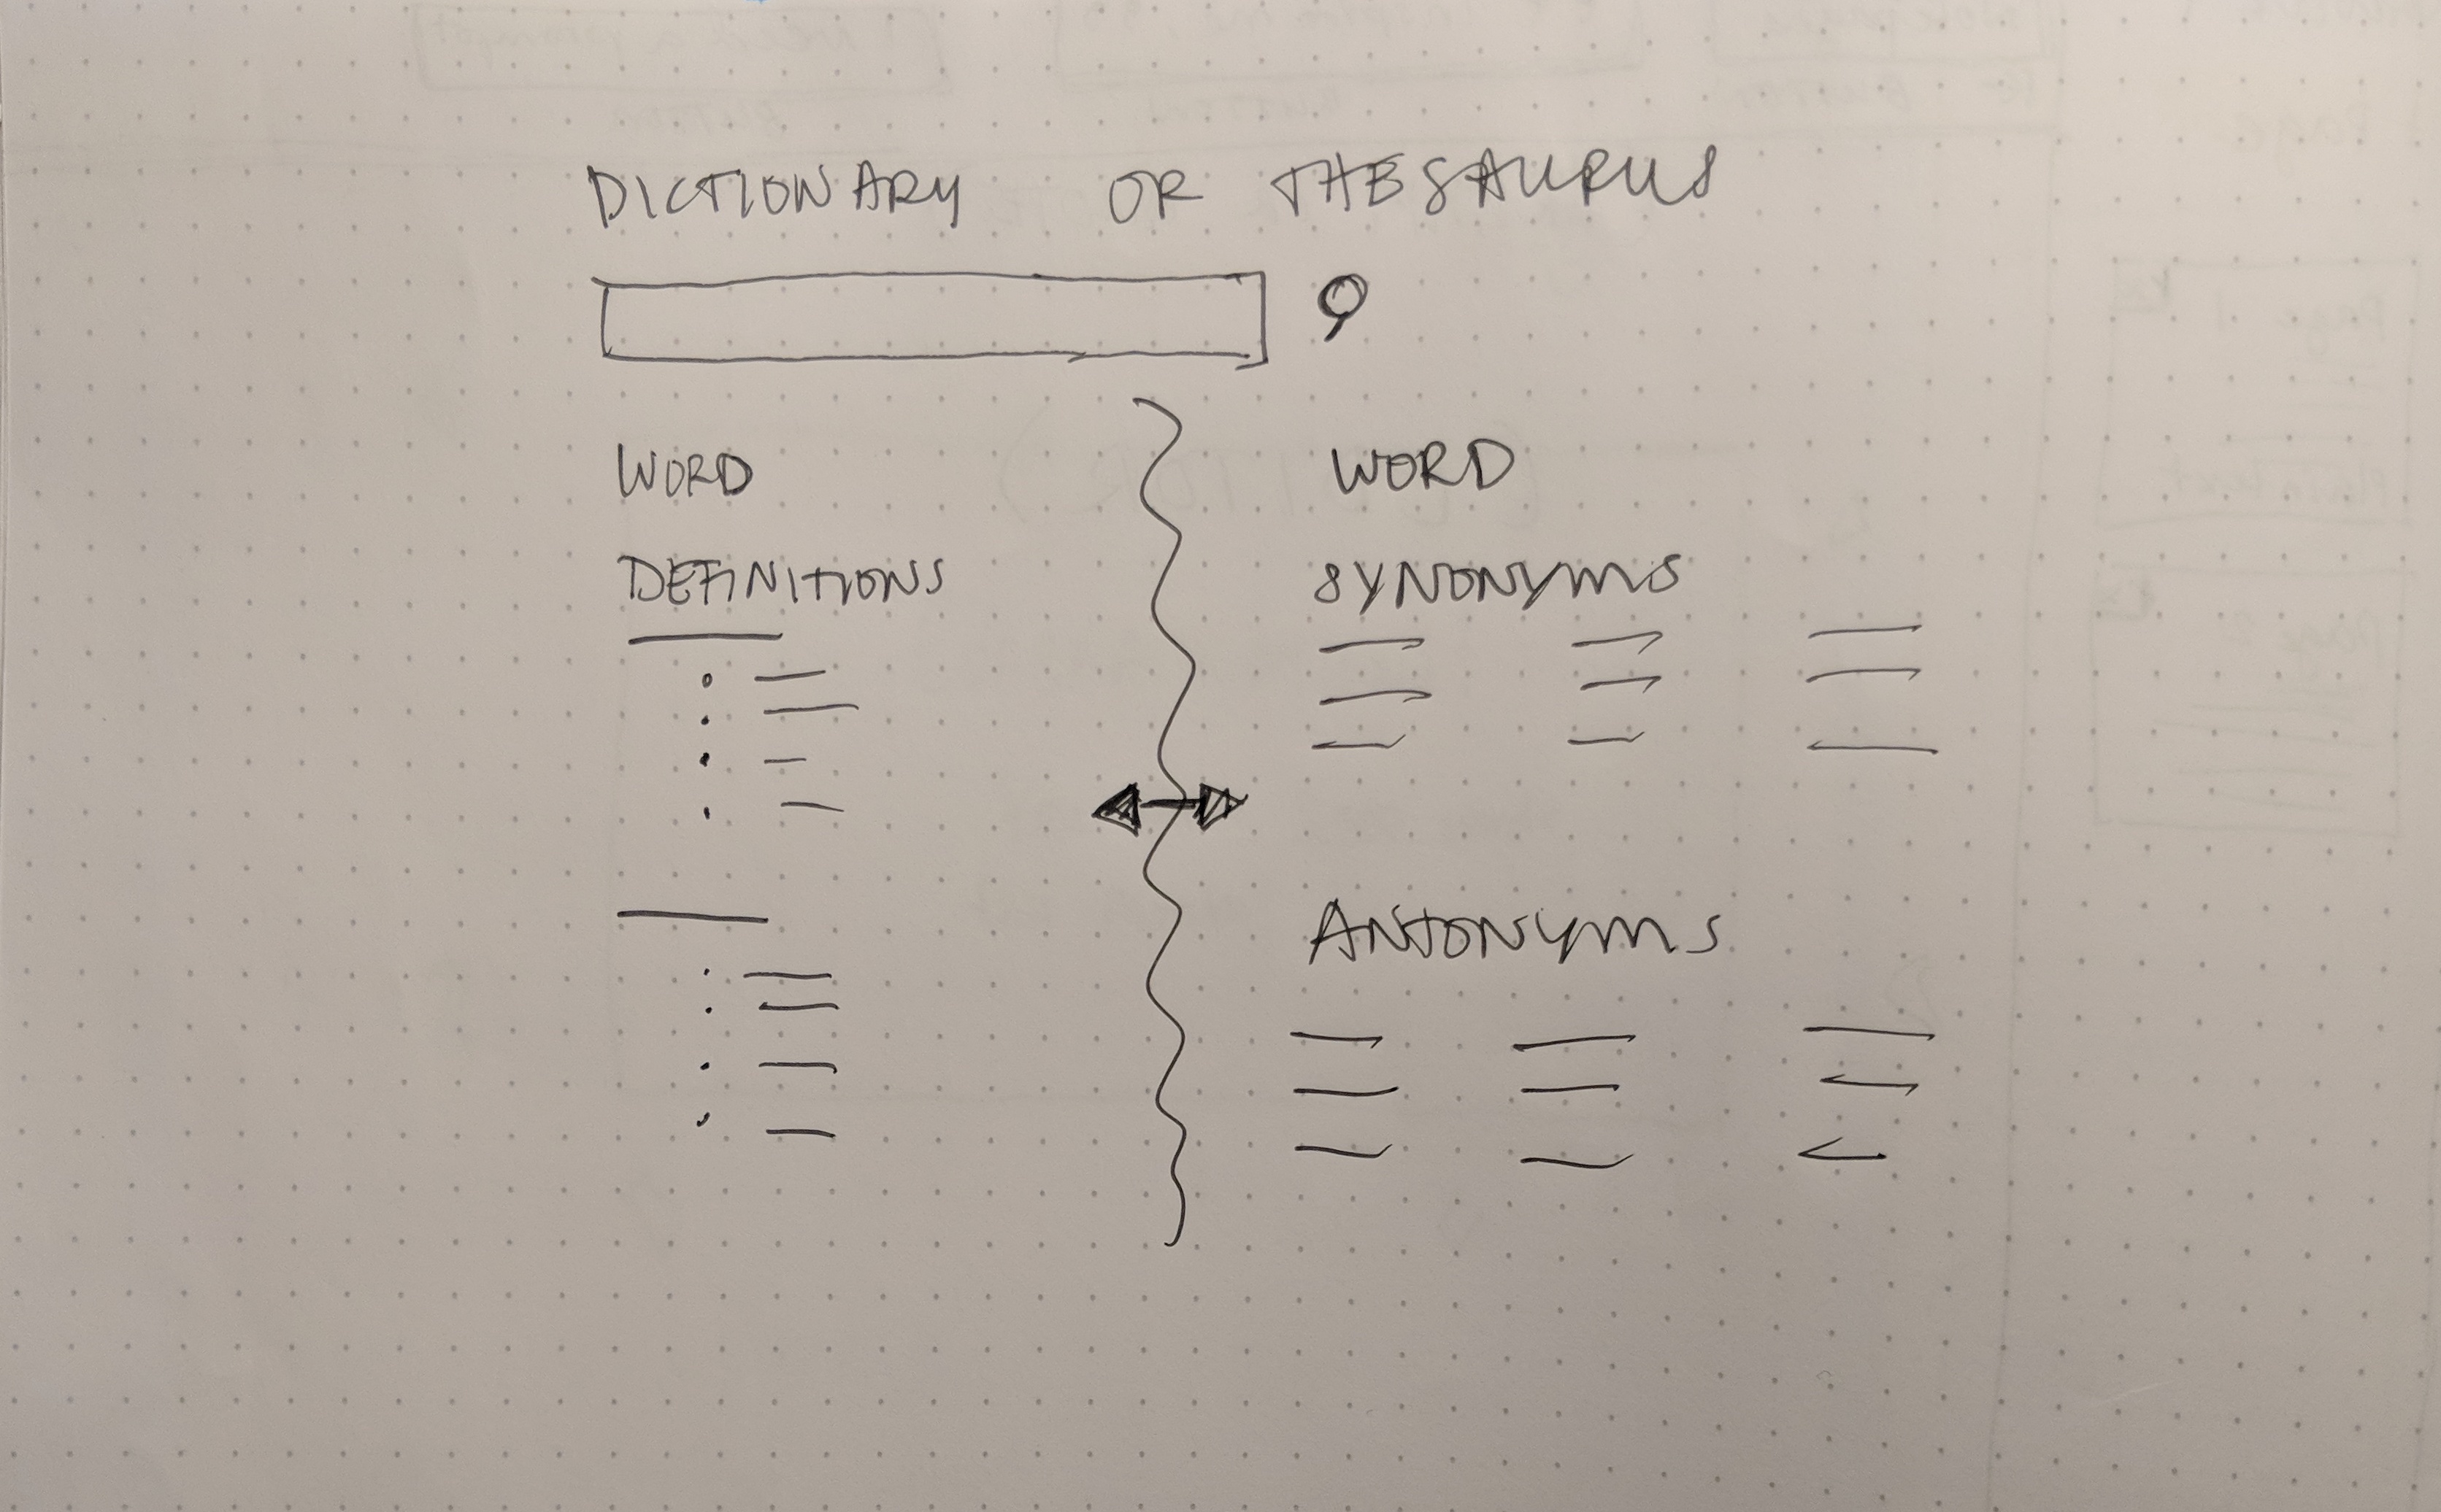 DICTIONARY OR THESAURUS
WORD
DEFINITIONS
WORD
SYNONYMS
ANTONYMS